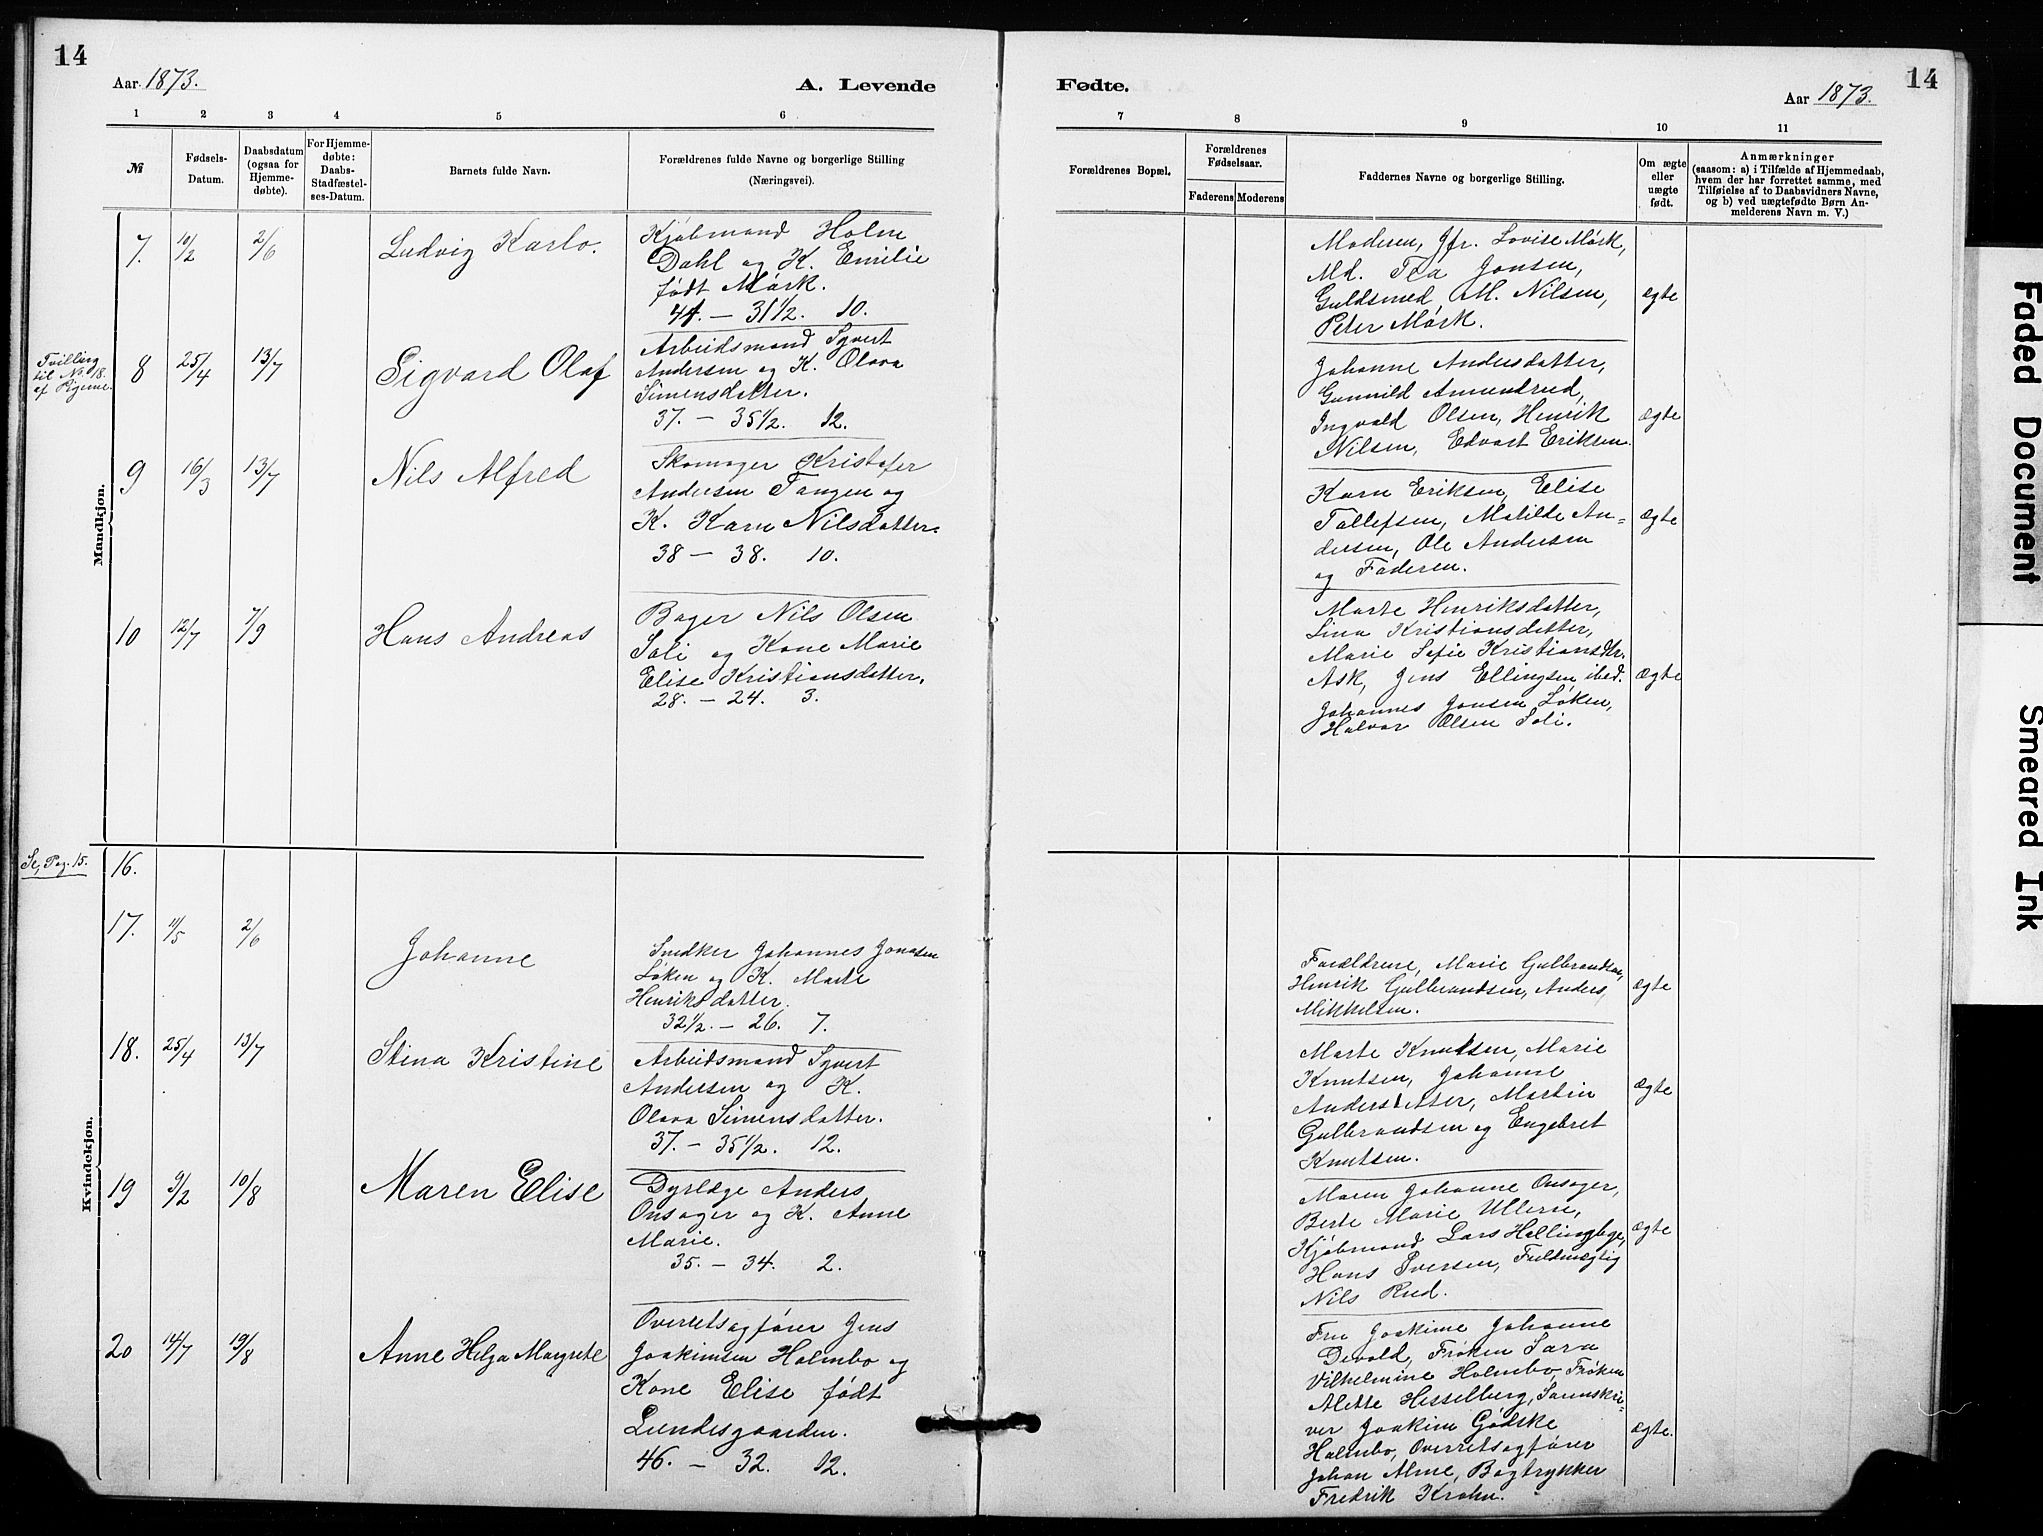 14
Aar 1873.
A. Levende
1 2 3 4 5 6
№
Fødsels-
Datum.
Daabsdatum
(ogsaa for
Hjemme-
døbte).
For Hjemme-
døbte:
Daabs-
Stadfæstel-
ses-Datum.
Barnets fulde Navn.
Forældrenes fulde Navne og borgerlige Stilling
(Næringsvei).
Mandkjøn.
7. 10/2 2/6 Ludvig Karlo.
Kjøbmand Holm
Dahl og K. Emilie
født Mørk.
41. — 31 1/2. 10.
Tvilling
til No. 18.
af Kjønne.
8 25/4 13/7 Sigvard Olaf
Arbeidsmand Syvert
Andersen og K. Olava
Simensdatter.
37. — 35 1/2. 12.
9 16/3 13/7 Nils Alfred
Skomager Kristofer
Andersen Tangen og
K. Karn Nilsdatter.
38 — 38. 10.
10 12/7 7/9 Hans Andreas
Bager Nils Olsen
Soli og Kone Marie
Elise Kristiansdatter.
28. — 24. 3.
Kvindekjøn.
Se, Pag. 15.
16.
17. 11/5 2/6 Johanne
Snedker Johannes Jonasen
Løken og K. Marte
Henriksdatter.
32 1/2. — 26. 7.
18. 25/4 13/7 Stina Kristine
Arbeidsmand Syvert
Andersen og K.
Olava Simensdatter.
37. — 35 1/2. 12.
19 9/2 10/8 Maren Elise
Dyrlæge Anders
Onsager og K. Anne
Marie.
35. — 34. 2.
20 14/7 19/8 Anne Helga Margrete
Overretsagfører Jens
Joakimsen Holmbo og
Kone Elise født
Lundesgaarden.
46. — 32. 12.
14
Fødte.
Aar 1873.
7 8 9 10 11
Forældrenes Bopæl.
Forældrenes
Fødselsaar.
Faderens Moderens
Faddernes Navne og borgerlige Stilling.
Om ægte
eller
uægte
født.
Anmærkninger
(saasom: a) i Tilfælde af Hjemmedaab,
hvem der har forrettet samme, med
Tilføielse af to Daabsvidners Navne,
og b) ved uægtefødte Børn An-
melderens Navn m. V.)
Moderen, Jfr. Lovise Mørk,
Md. Tea Jonsen,
Guldsmed M. Nilsen, ægte
Peter Mørk.
Johanne Andersdatter,
Gunnild Amundrud,
Ingvald Olsen, Henrik ægte
Nilsen, Edvart Eriksen.
Karn Eriksen, Elise
Tollefsen, Matilde An= ægte
dersen, Ole Andersen
og Faderen.
Marte Henriksdatter,
Lina Kristiansdatter,
Marie Sofie Kristiansdtr.
Ask, Jens Ellingsen ibid. ægte
Johannes Jonsen Løken,
Halvor Olsen Soli.
Forældrene, Marie Gulbrandsen,
Henrik Gulbrandsen, Anders ægte
Mikkelsen.
Marte Knutsen, Marie
Knutsen, Johanne
Andersdatter, Martin ægte
Gulbrandsen og Engebret
Knutsen.
Maren Johanne Onsager,
Berte Marie Ullern,
Kjøbmand Lars Hellingbye, ægte
Hans Iversen, Fuldmægtig
Nils Rud.
Fru Joakime Johanne
Devold, Frøken Sara
Vilhelmine Holmbo, Frøken
Alette Hesselberg, Sorenskri=
ver Joakim Gødske ægte.
Holmbo, Overretsagfører
Johan Alme, Bogtrykker
Fredrik Krohn.
Faded Document
Smeared Ink